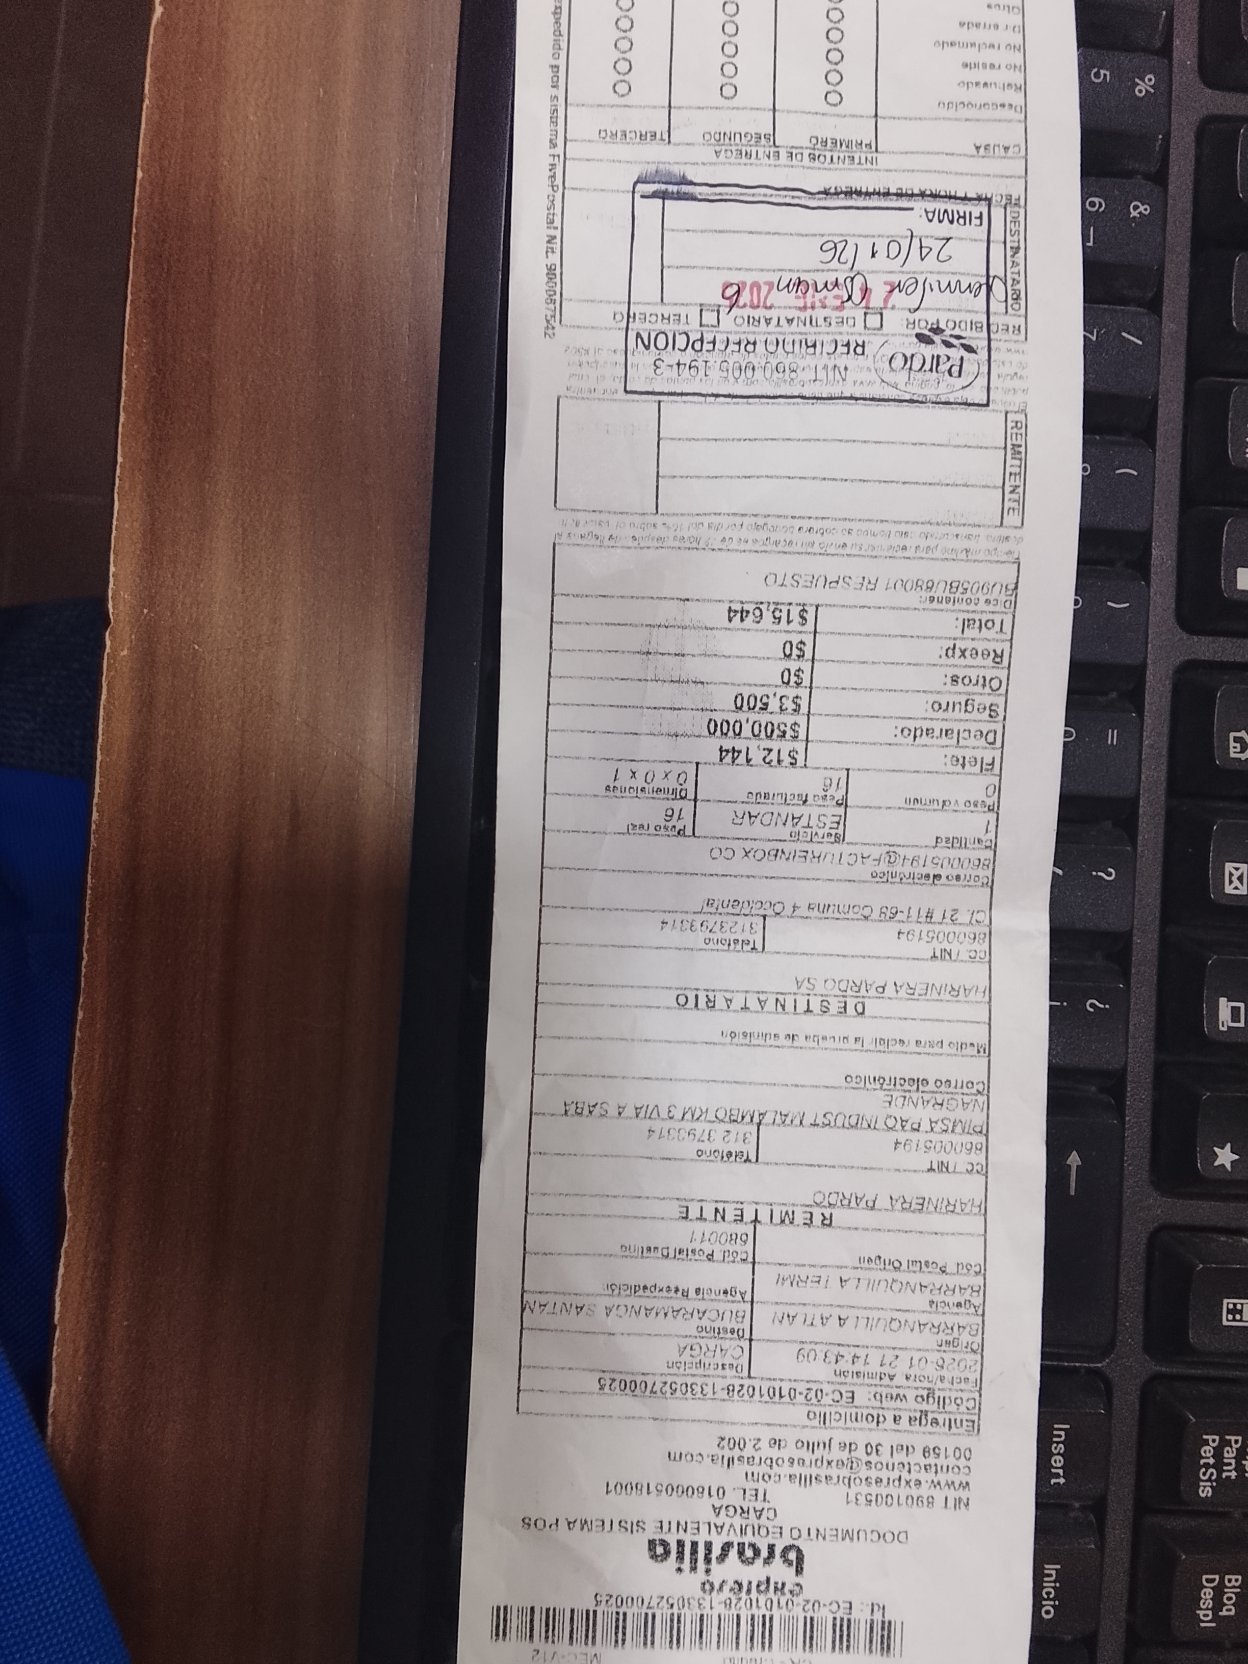 MEC-V12
Id.: EC-02-0101028-133052700025
expreso
brasilia
DOCUMENTO EQUIVALENTE SISTEMA POS
CARGA
NIT 890100531 TEL. 018000518001
www.expresobrasilia.com
contactenos@expresobrasilia.com
00159 del 30 de julio de 2.002
Entrega a domicilio
Código web: EC-02-0101028-133052700025
Fecha/hora Admisión Descripción
2026-01-21 14:43:09 CARGA
Origen Destino
BARRANQUILLA ATLAN BUCARAMANGA SANTAN
Agencia Agencia Reexpedición:
BARRANQUILLA TERMI
Cód. Postal Origen Cód. Postal Destino
680011
REMITENTE
HARINERA PARDO
CC / NIT Teléfono
860005194 312 3793314
PIMSA PAQ INDUST MALAMBO KM 3 VIA A SABA
NAGRANDE
Correo electrónico
Medio para recibir la prueba de admisión
DESTINATARIO
HARINERA PARDO SA
CC / NIT Teléfono
860005194 3123793314
CL 21 #11-68 Comuna 4 Occidental
Correo electrónico
860005194@FACTUREINBOX CO
Cantidad Servicio Peso real
1 ESTANDAR 16
Peso volumen Peso facturado Dimensiones
0 16 0 x 0 x 1
Flete: $12,144
Declarado: $500,000
Seguro: $3,500
Otros: $0
Reexp: $0
Total: $15,644
Dice contener:
BU905BU68001 RESPUESTO
REMITENTE
Pardo
NIT. 860.005.194-3
RECIBIDO RECEPCION
RECIBIDO POR: DESTINATARIO TERCERO
DESTINATARIO
24/01/26
FIRMA:
FECHA Y HORA DE ENTREGA
INTENTOS DE ENTREGA
CAUSA PRIMERO SEGUNDO TERCERO
Desconocido
Rehusado
No reside
No reclamado
Dir errada
Otros
expedido por sistema FivePostal Nit. 900087542
%
5
&
6
/
7
(
)
=
?
¿
¡
Insert
Inicio
Pant
PetSis
Bloq
Despl